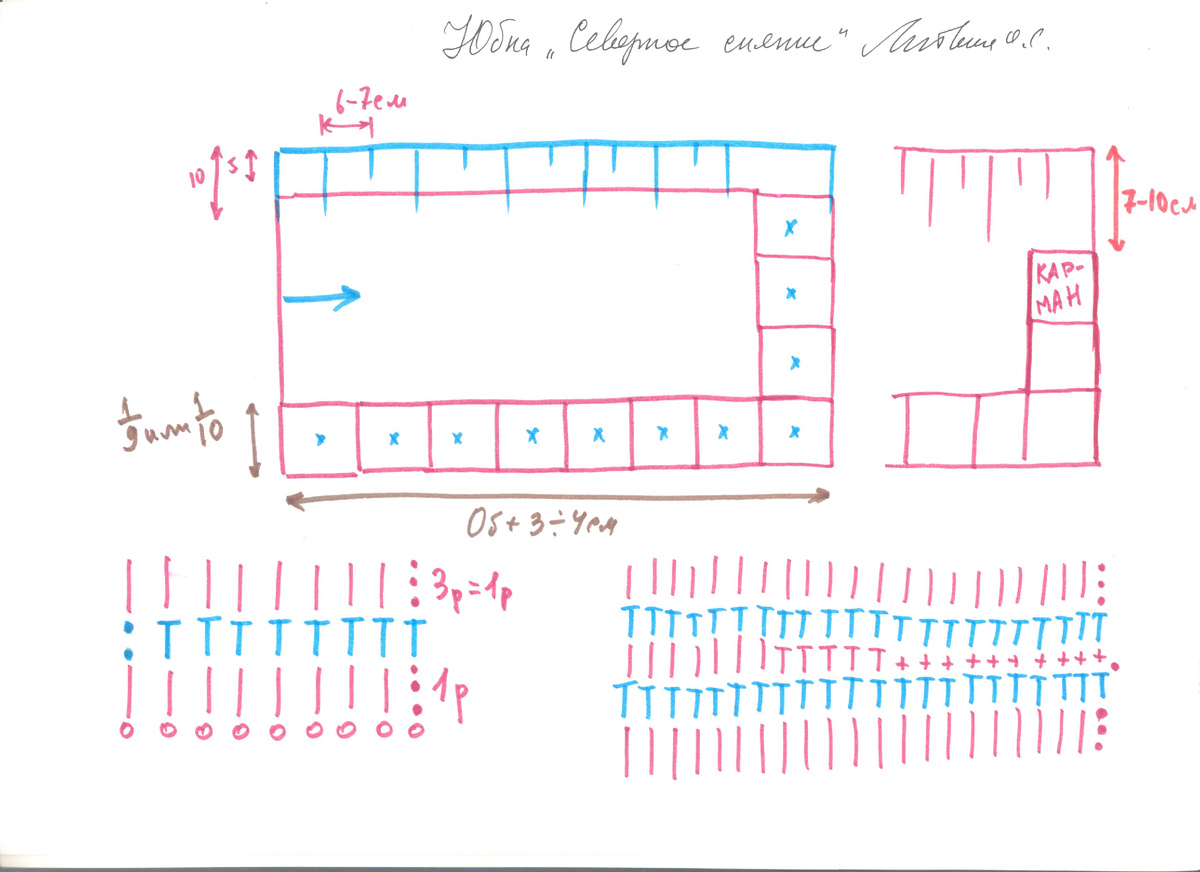 Юбка „Северное сияние“ Литвина О.С.
6-7см
10 5
7-10см
КАР-
МАН
1/9 или 1/10
Об + 3÷4см
3р=1р
1р